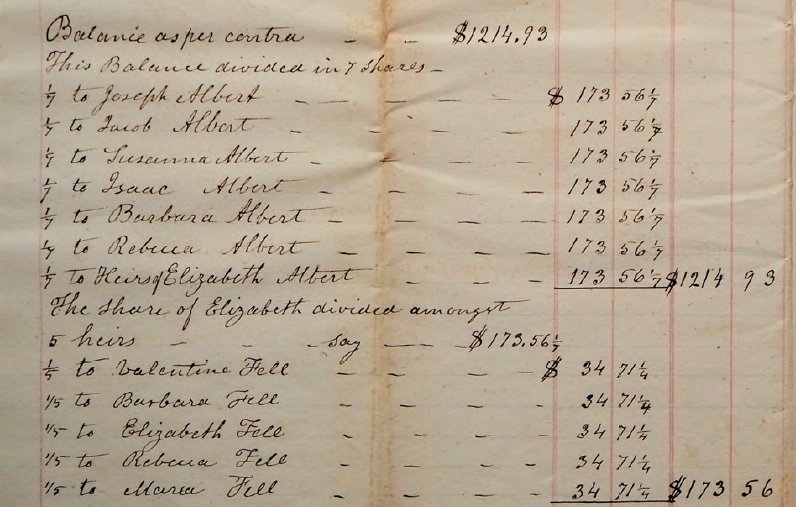 Balance as per contra - - $1214.93
This Balance divided in 7 Shares -
1/7 to Joseph Albert - - - - - $ 173 56 1/7
1/7 to Jacob Albert - - - - - 173 56 1/7
1/7 to Susanna Albert - - - - - 173 56 1/7
1/7 to Isaac Albert - - - - - 173 56 1/7
1/7 to Barbara Albert - - - - - 173 56 1/7
1/7 to Rebecca Albert - - - - - 173 56 1/7
1/7 to Heirs of Elizabeth Albert - - - - 173 56 1/7 $1214 93
The Share of Elizabeth divided amongst
5 heirs - - - say - - $173.56 1/7
1/5 to Valentine Fell - - - - - $ 34 71 1/4
1/5 to Barbara Fell - - - - - 34 71 1/4
1/5 to Elizabeth Fell - - - - - 34 71 1/4
1/5 to Rebecca Fell - - - - - 34 71 1/4
1/5 to Maria Fell - - - - - 34 71 1/4 $173 56